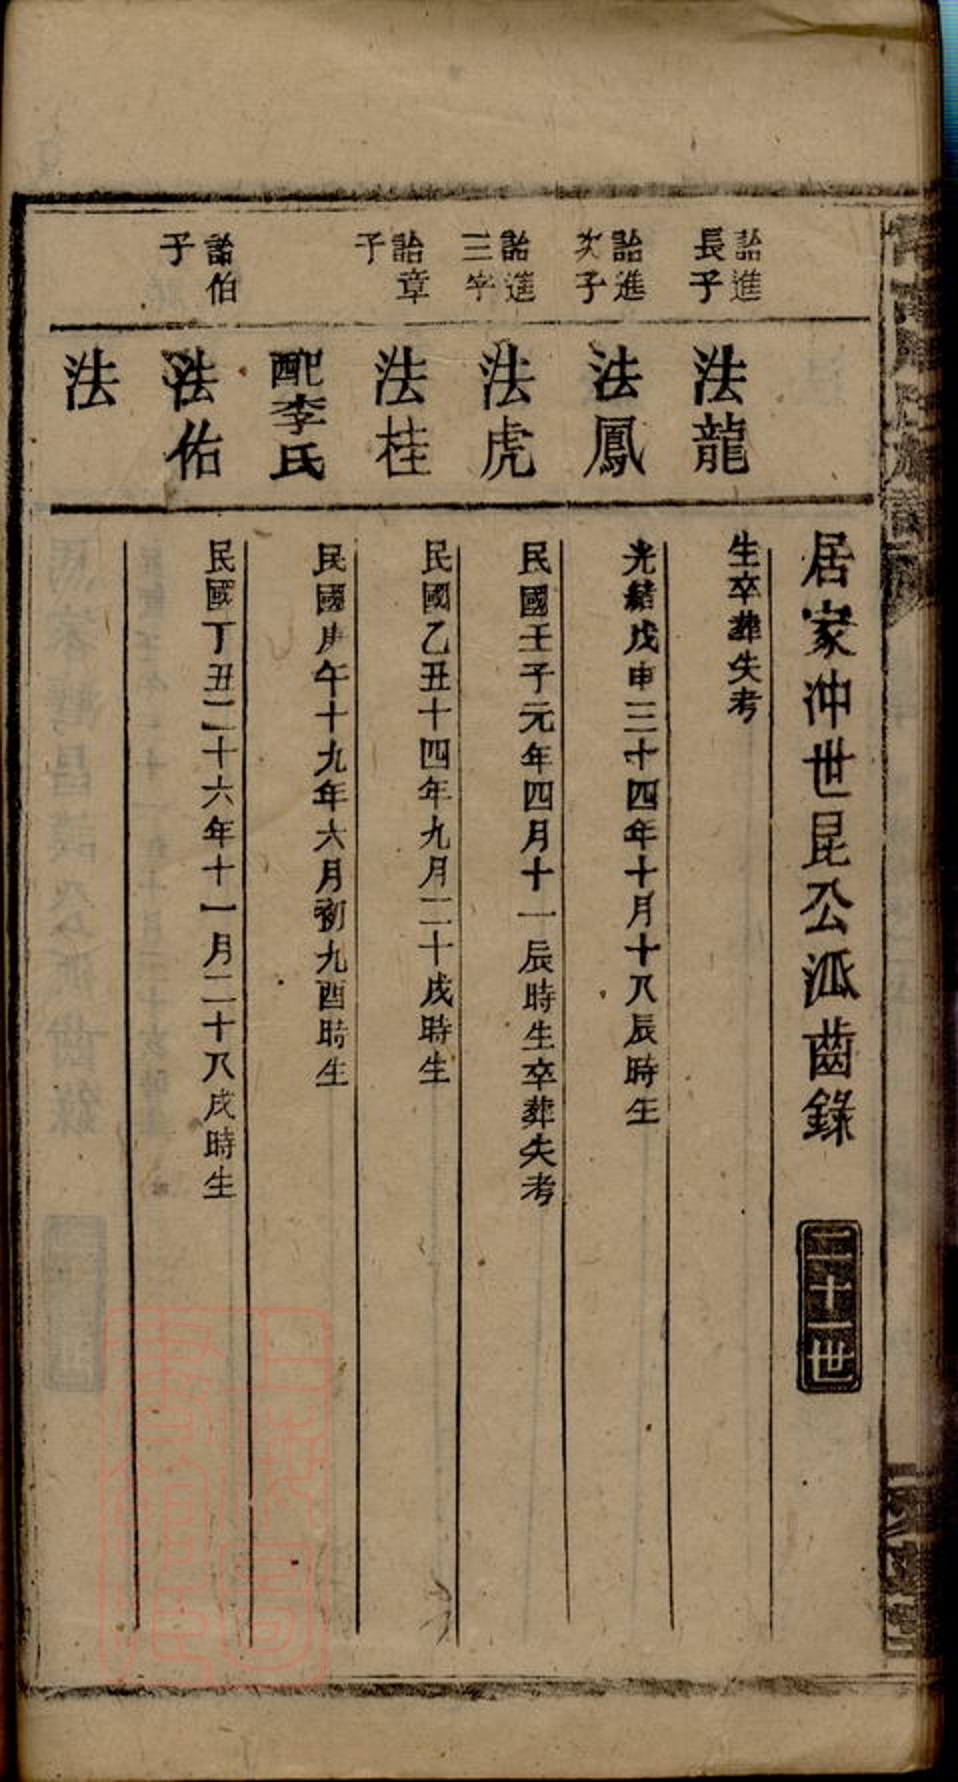 居家沖世昆公派齒錄 二十一世
詒進
長子
法龍
生卒葬失考
詒進
次子
法鳳
光緒戊申三十四年十月十八辰時生
詒進
三字
法虎
民國壬子元年四月十一辰時生卒葬失考
詒章
子
法桂
民國乙丑十四年九月二十戌時生
配李氏
民國庚午十九年六月初九酉時生
詒伯
子
法佑
民國丁丑二十六年十一月二十八戌時生
法